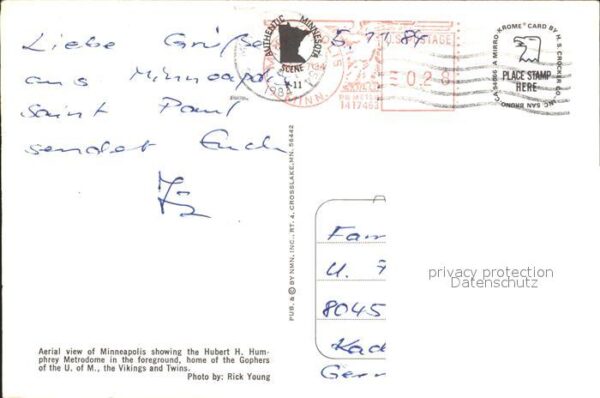 Liebe Grüße 5.11.84
aus Minneapolis
Saint Paul
sendet Euch
AUTHENTIC MINNESOTA
SCENE
K-11
MINN.
PB METER
1417463
U.S. POSTAGE
028
A MIRRO-KROME® CARD BY H. S. CROCKER CO. INC.
SAN BRUNO CA. 94066
PLACE STAMP
HERE
PUB. & © BY NMN, INC., RT. 4, CROSSLAKE, MN. 56442
Fam
U.
8045
Germ
privacy protection
Datenschutz
Aerial view of Minneapolis showing the Hubert H. Hum-
phrey Metrodome in the foreground, home of the Gophers
of the U. of M., the Vikings and Twins.
Photo by: Rick Young